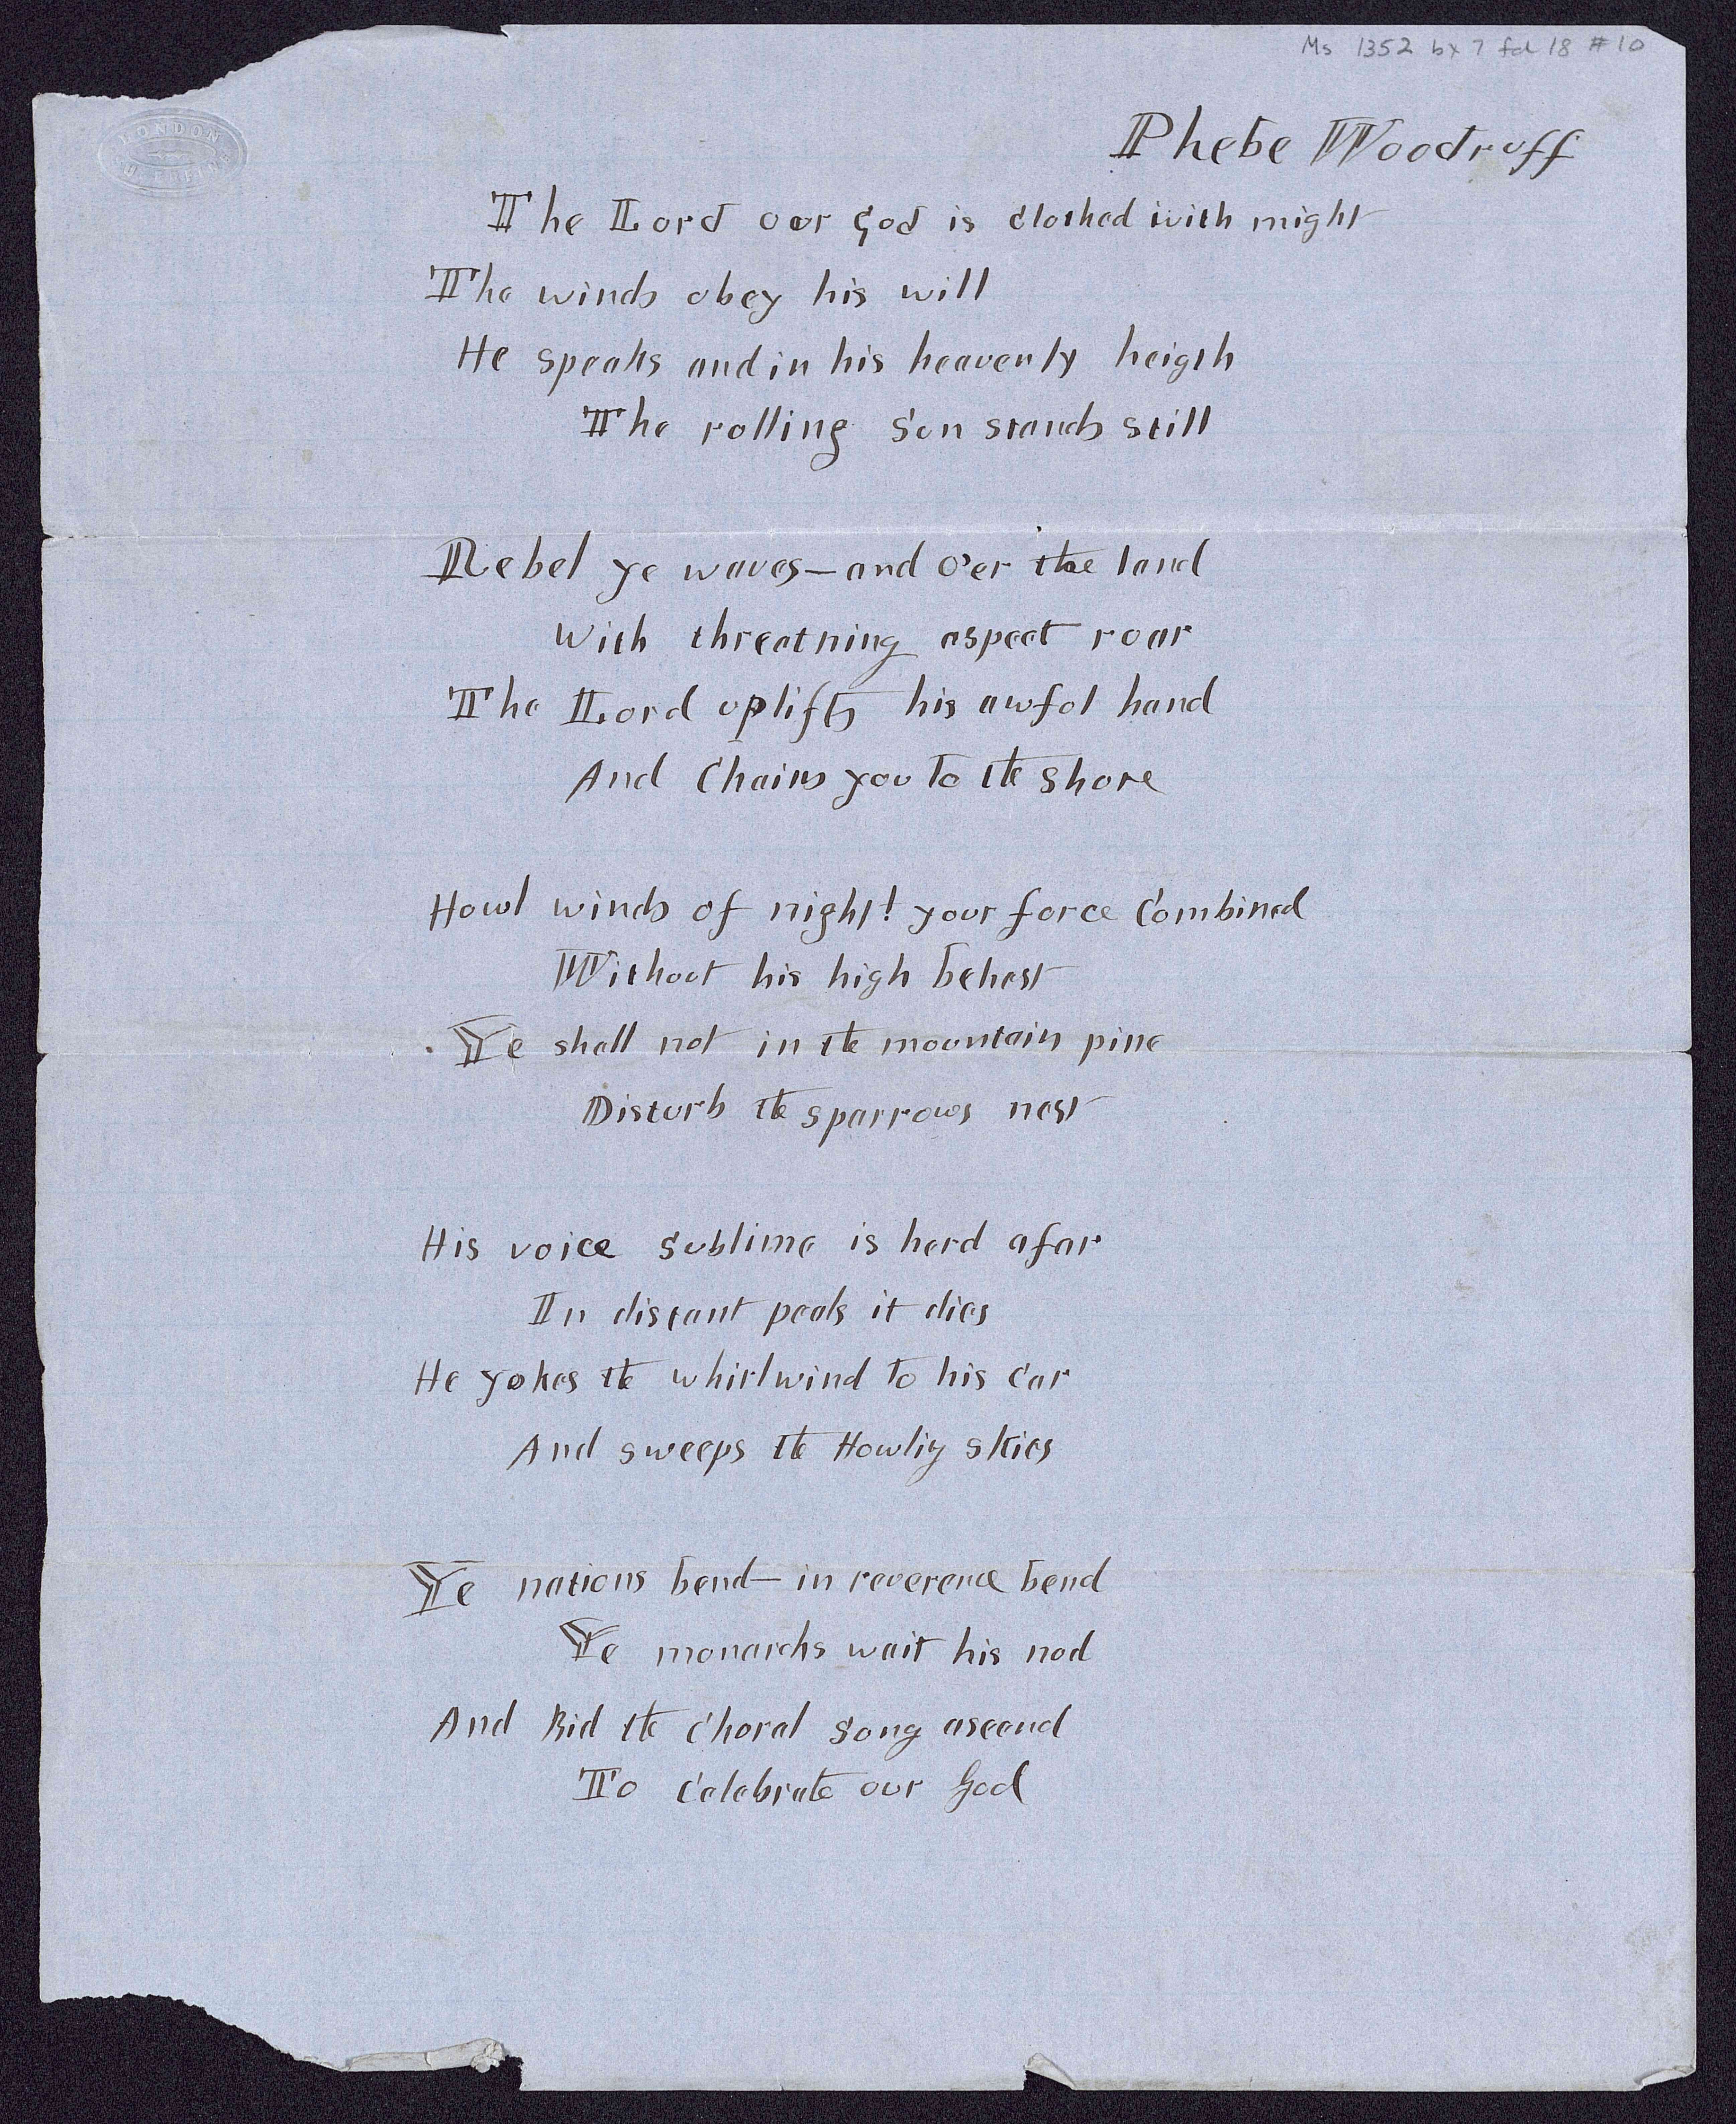 Ms 1352 bx 7 fd 18 #10
LONDON
SUPERFINE
Phebe Woodruff
The Lord our God is Clothed with might
The winds obey his will
He speaks and in his heavenly heigth
The rolling Sun stands still
Rebel ye waves—and o'er the land
With threatning aspect roar
The Lord uplifts his awful hand
And Chains you to the shore
Howl winds of night! your force Combined
Without his high behest
Ye shall not in the mountain pine
Disturb the sparrows nest
His voice sublime is herd afar
In distant peals it dies
He yokes the whirlwind to his Car
And sweeps the Howlig skies
Ye nations bend—in reverence bend
Ye monarchs wait his nod
And Bid the Choral song ascend
To Celebrate our God